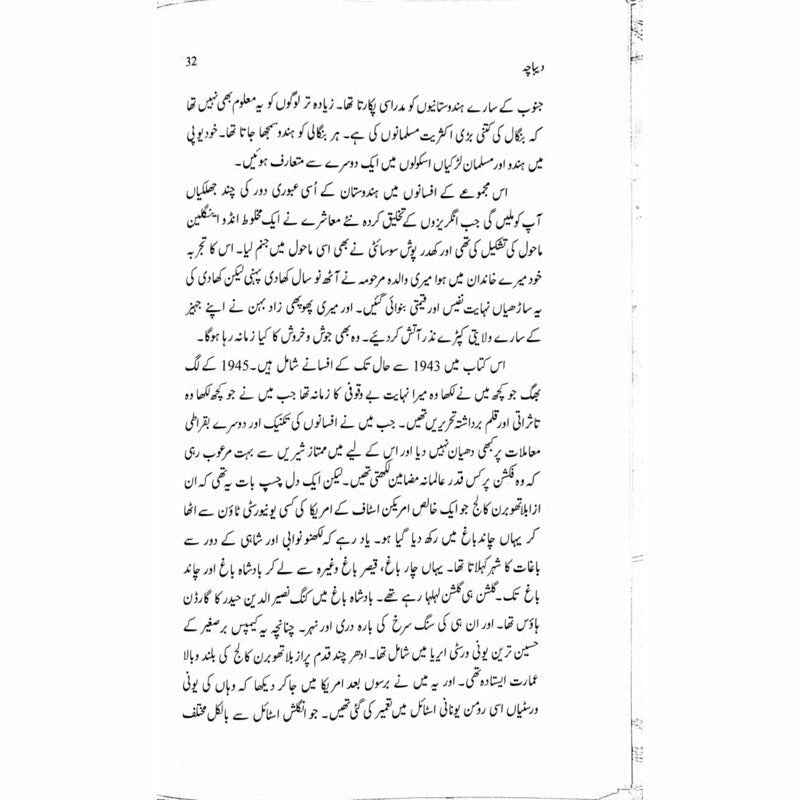 دیباچہ 32
جنوب کے سارے ہندوستانیوں کو مدراسی پکارتا تھا۔ زیادہ تر لوگوں کو یہ معلوم بھی نہیں تھا
کہ بنگال کی کتنی بڑی اکثریت مسلمانوں کی ہے۔ ہر بنگالی کو ہندو سمجھا جاتا تھا۔ خود یو پی
میں ہندو اور مسلمان لڑکیاں اسکولوں میں ایک دوسرے سے متعارف ہوئیں۔
اس مجموعے کے افسانوں میں ہندوستان کے اُسی عبوری دور کی چند جھلکیاں
آپ کو ملیں گی جب انگریزوں کے تخلیق کردہ نئے معاشرے نے ایک مخلوط انڈو اینگلین
ماحول کی تشکیل کی تھی اور کھدر پوش سوسائٹی نے بھی اسی ماحول میں جنم لیا۔ اس کا تجربہ
خود میرے خاندان میں ہوا میری والدہ مرحومہ نے آٹھ نو سال کھادی پہنی لیکن کھادی کی
یہ ساڑھیاں نہایت نفیس اور قیمتی بنوائی گئیں۔ اور میری پھوپھی زاد بہن نے اپنے جہیز
کے سارے ولایتی کپڑے نذر آتش کر دیئے۔ وہ بھی جوش و خروش کا کیا زمانہ رہا ہوگا۔
اس کتاب میں 1943 سے حال تک کے افسانے شامل ہیں۔ 1945 کے لگ
بھگ جو کچھ میں نے لکھا وہ میرا نہایت بے وقوفی کا زمانہ تھا جب میں نے جو کچھ لکھا وہ
تاثراتی اور قلم برداشتہ تحریریں تھیں۔ جب میں نے افسانوں کی تکنیک اور دوسرے بقراطی
معاملات پر کبھی دھیان نہیں دیا اور اس کے لیے میں ممتاز شیریں سے بہت مرعوب رہی
کہ وہ فکشن پر کس قدر عالمانہ مضامین لکھتی تھیں۔ لیکن ایک دل چسپ بات یہ تھی کہ ان
ازابلا تھوبرن کالج جو ایک خالص امریکن اسٹاف کے امریکا کی کسی یونیورسٹی ٹاؤن سے اٹھا
کر یہاں چاند باغ میں رکھ دیا گیا ہو۔ یاد رہے کہ لکھنو نوابی اور شاہی کے دور سے
باغات کا شہر کہلاتا تھا۔ یہاں چار باغ، قیصر باغ وغیرہ سے لے کر بادشاہ باغ اور چاند
باغ تک۔ گلشن ہی گلشن لہلہا رہے تھے۔ بادشاہ باغ میں کنگ نصیر الدین حیدر کا گارڈن
ہاؤس تھا۔ اور ان ہی کی سنگ سرخ کی بارہ دری اور نہر۔ چنانچہ یہ کیمپس برصغیر کے
حسین ترین یونی ورسٹی ایریا میں شامل تھا۔ ادھر چند قدم پر ازبلا تھوبرن کالج کی بلند و بالا
عمارت ایستادہ تھی۔ اور یہ میں نے برسوں بعد امریکا میں جا کر دیکھا کہ وہاں کی یونی
ورسٹیاں اسی رومن یونانی اسٹائل میں تعمیر کی گئی تھیں۔ جو انگلش اسٹائل سے بالکل مختلف